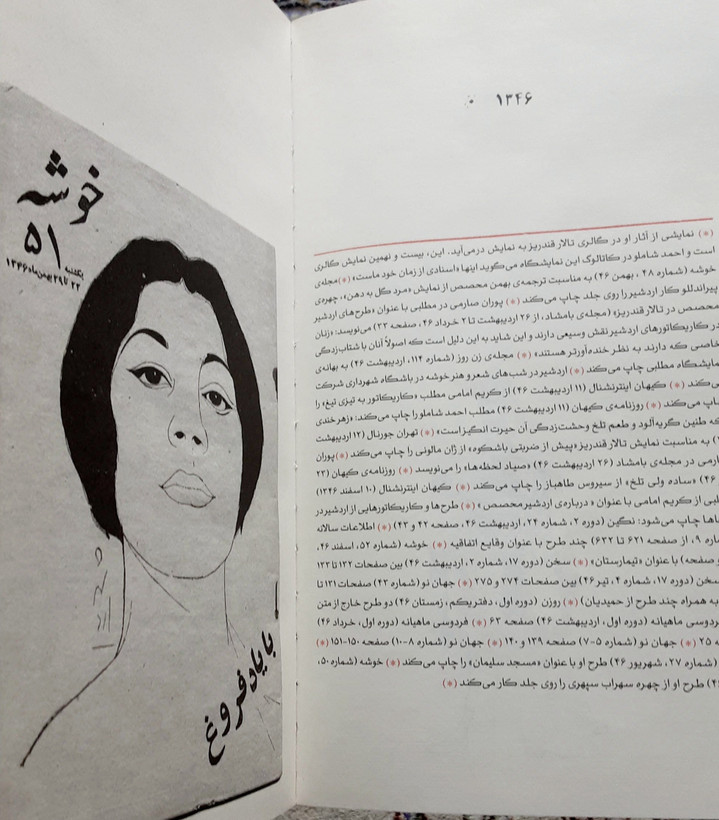 ۱۳۴۶
(*) نمایشی از آثار او در گالری تالار قندریز به نمایش درمی‌آید. این، بیست و نهمین نمایش گالری
است و احمد شاملو در کاتالوگ این نمایشگاه می‌گوید اینها «اسنادی از زمان خود ماست» (*) مجله‌ی
خوشه (شماره ۴۸، بهمن ۴۶) به مناسبت ترجمه‌ی بهمن محصص از نمایش «مرد گل به دهن»، چهره‌ی
پیراندللو کار اردشیر را روی جلد چاپ می‌کند (*) پوران صارمی در مطلبی با عنوان «طرح‌های اردشیر
محصص در تالار قندریز» (مجله‌ی بامشاد، از ۲۶ اردیبهشت تا ۲ خرداد ۴۶، صفحه ۳۳) می‌نویسد: «زنان
در کاریکاتورهای اردشیر نقش وسیعی دارند و این شاید به این دلیل است که اصولاً آنان با شتاب‌زدگی
خاصی که دارند به نظر خنده‌آورتر هستند» (*) مجله‌ی زن روز (شماره ۱۱۴، اردیبهشت ۴۶) به بهانه‌ی
نمایشگاه مطلبی چاپ می‌کند (*) اردشیر در شب‌های شعر و هنر خوشه در باشگاه شهرداری شرکت
می‌کند (*) کیهان اینترنشنال (۱۱ اردیبهشت ۴۶) از کریم امامی مطلب «کاریکاتور به تیزی تیغ» را
چاپ می‌کند (*) روزنامه‌ی کیهان (۱۱ اردیبهشت ۴۶) مطلب احمد شاملو را چاپ می‌کند: «زهرخندی
که طنین گریه‌آلود و طعم تلخ وحشت‌زدگی آن حیرت انگیز است» (*) تهران جورنال (۱۲ اردیبهشت
به مناسبت نمایش تالار قندریز «پیش از ضربتی باشکوه» از ژان مالونی را چاپ می‌کند (*) پوران
صارمی در مجله‌ی بامشاد (۲۶ اردیبهشت ۴۶) «صیاد لحظه‌ها» را می‌نویسد (*) روزنامه‌ی کیهان (۲۳
۴۶) «ساده ولی تلخ»، از سیروس طاهباز را چاپ می‌کند (*) کیهان اینترنشنال (۱۰ اسفند ۱۳۴۶)
از کریم امامی با عنوان «درباره‌ی اردشیر محصص» (*) طرح‌ها و کاریکاتورهایی از اردشیر در
چاپ می‌شود: نگین (دوره ۲، شماره ۲۴، اردیبهشت ۴۶، صفحه ۴۲ و ۴۳) (*) اطلاعات سالانه
۹، از صفحه ۶۲۱ تا ۶۳۲) چند طرح با عنوان وقایع اتفاقیه (*) خوشه (شماره ۵۲، اسفند ۴۶،
صفحه) با عنوان «تیمارستان» (*) سخن (دوره ۱۷، شماره ۲، اردیبهشت ۴۶) بین صفحات ۱۳۲ تا ۱۳۳
سخن (دوره ۱۷، شماره ۴، تیر ۴۶) بین صفحات ۲۷۴ و ۲۷۵ (*) جهان نو (شماره ۴۲ صفحات ۱۳۱ تا
به همراه چند طرح از حمیدیان) (*) روزن (دوره اول، دفتر یکم، زمستان ۴۶) دو طرح خارج از متن
فردوسی ماهیانه (دوره اول، اردیبهشت ۴۶) صفحه ۶۳ (*) فردوسی ماهیانه (دوره اول، خرداد ۴۶)
۲۵ (*) جهان نو (شماره ۵-۷) صفحه ۱۳۹ و ۱۴۰ (*) جهان نو (شماره ۸-۱۰) صفحه ۱۵۰-۱۵۱ (*)
(شماره ۲۷، شهریور ۴۶) طرح او با عنوان «مسجد سلیمان» را چاپ می‌کند (*) خوشه (شماره ۵۰،
طرح او از چهره سهراب سپهری را روی جلد کار می‌کند (*)
خوشه
۵۱
یکشنبه
۲۲ تا ۲۹ بهمن ماه ۱۳۴۶
با یاد فروغ